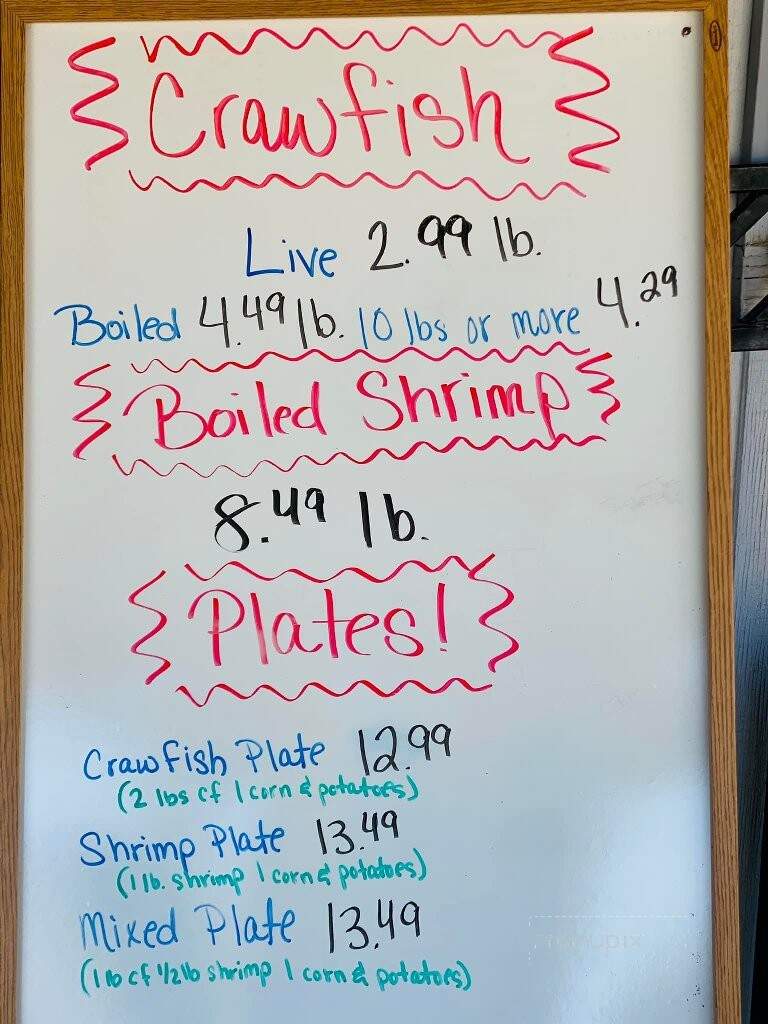 Crawfish
Live 2.99 lb.
Boiled 4.49 lb. 10 lbs or more 4.29
Boiled Shrimp
8.49 lb.
Plates!
Crawfish Plate 12.99
(2 lbs cf 1 corn & potatoes)
Shrimp Plate 13.49
(1 lb. shrimp 1 corn & potatoes)
Mixed Plate 13.49
(1 lb cf 1/2 lb shrimp 1 corn & potatoes)